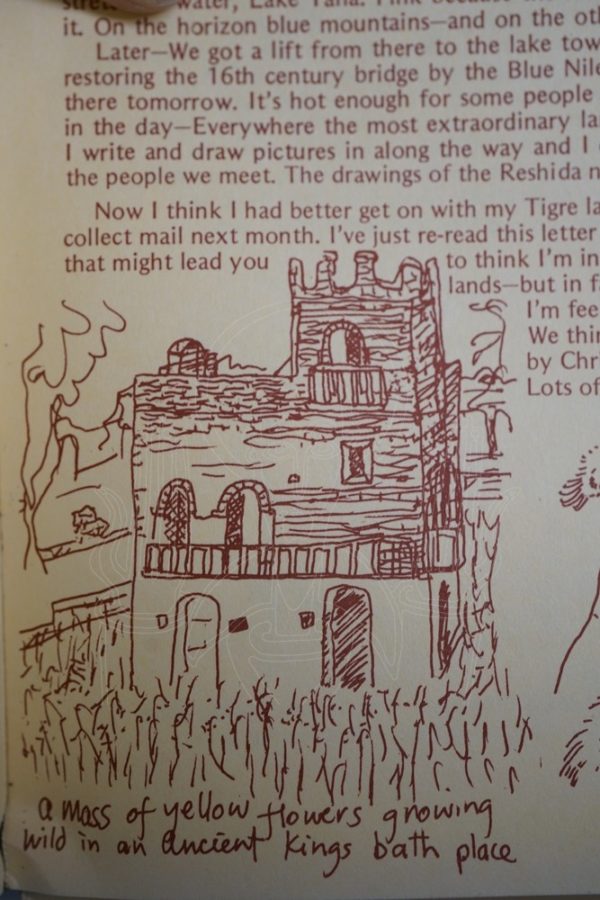 water, Lake Tana. Pink because the
it. On the horizon blue mountains—and on the
Later—We got a lift from there to the lake
restoring the 16th century bridge by the Blue Nile
there tomorrow. It's hot enough for some people
in the day—Everywhere the most extraordinary
I write and draw pictures in along the way and I
the people we meet. The drawings of the Reshida
Now I think I had better get on with my Tigre
collect mail next month. I've just re-read this letter
that might lead you to think I'm in
lands—but in
I'm
We
by
Lots of
a mass of yellow flowers growing
wild in an ancient kings bath place